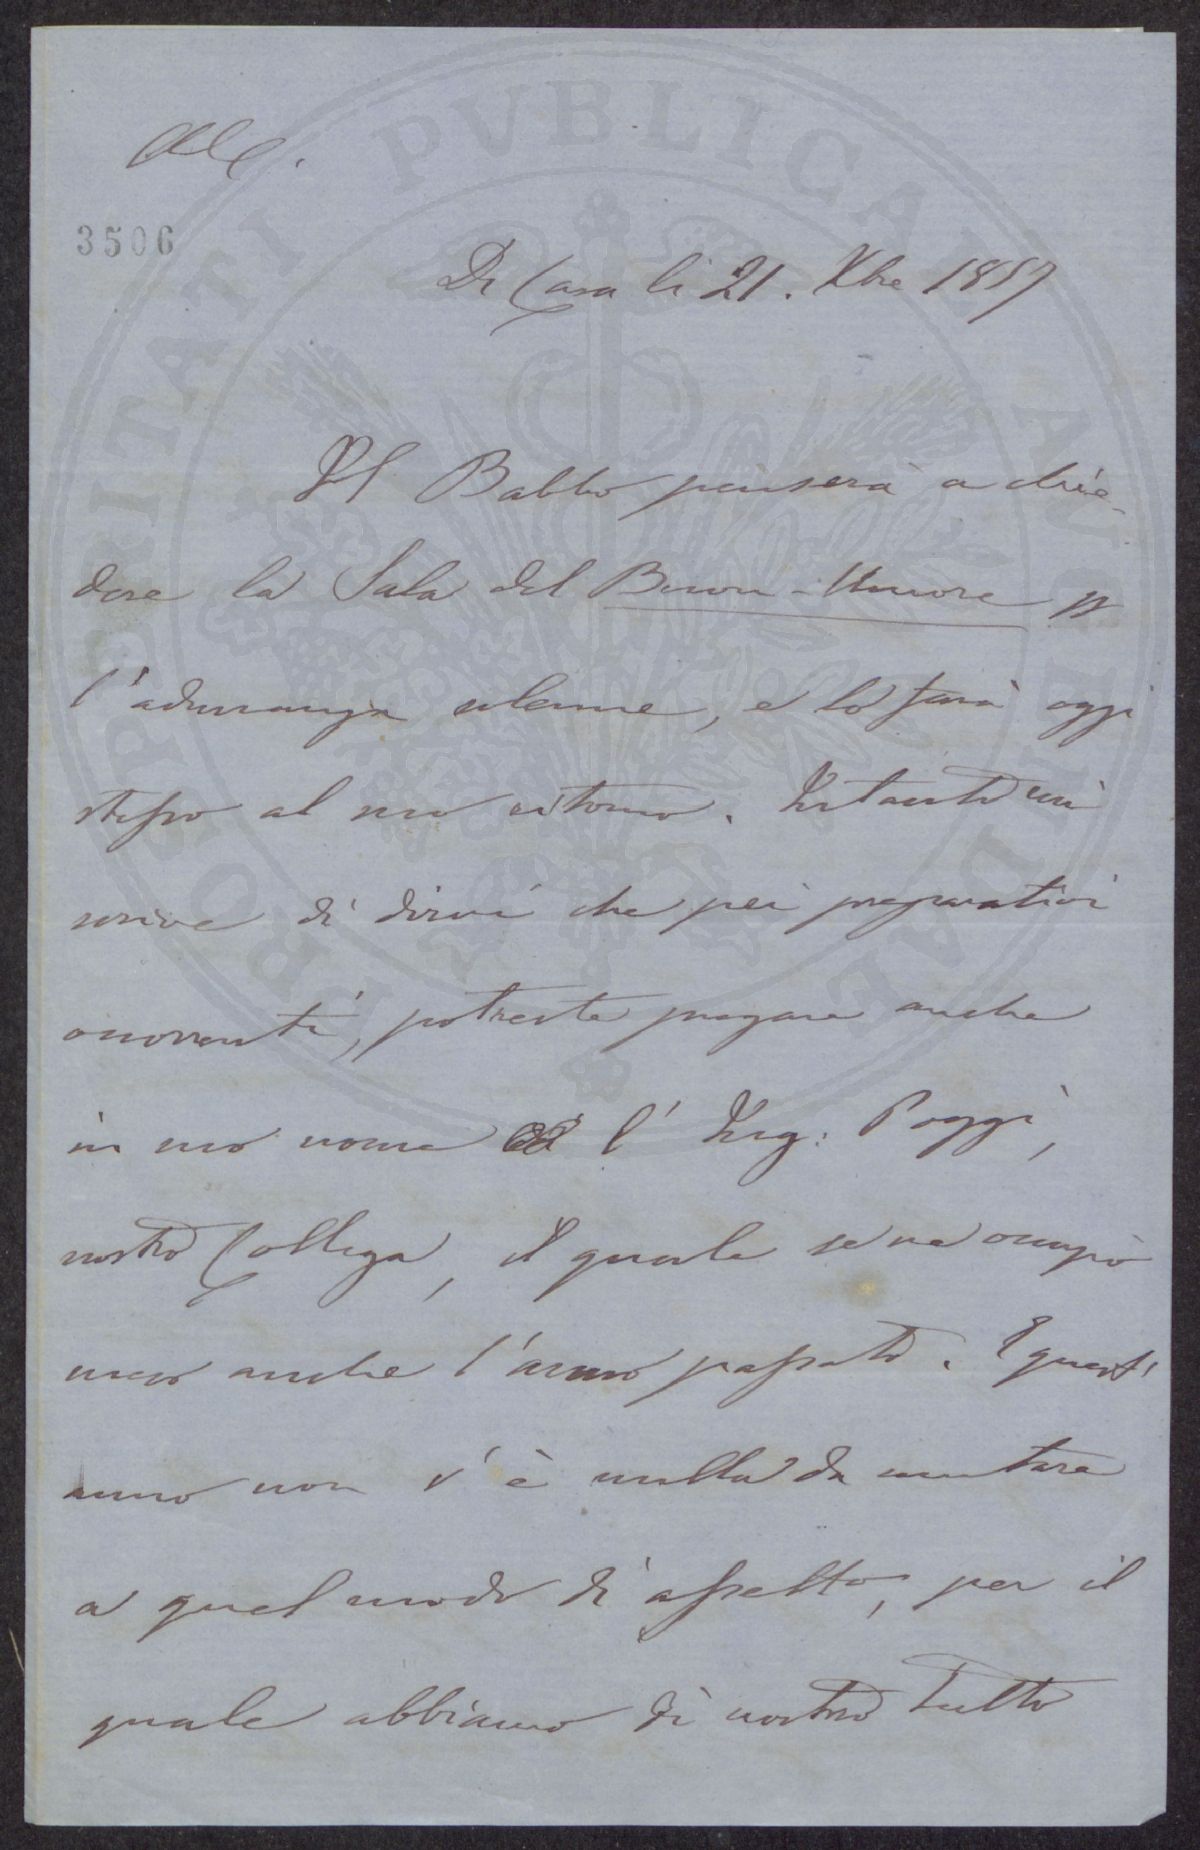 All.
3506
Di Casa li 21. Xbre 1857
Il Babbo penserà a chie-
dere la Sala del Buon-Umore p
l'adunanza solenne, e lo farà oggi
stesso al suo ritorno. Intanto mi
scrive di dirvi che pei preparativi
occorrenti, potreste pregare anche
in suo nome l'Ing: Poggi,
nostro Collega, il quale se ne occupò
meco anche l'anno passato. Quest'
anno non v'è nulla da mutare
a quel modo di assetto, per il
quale abbiamo di nostro tutto
PROSPERITATI PUBLICAE AUGENDAE